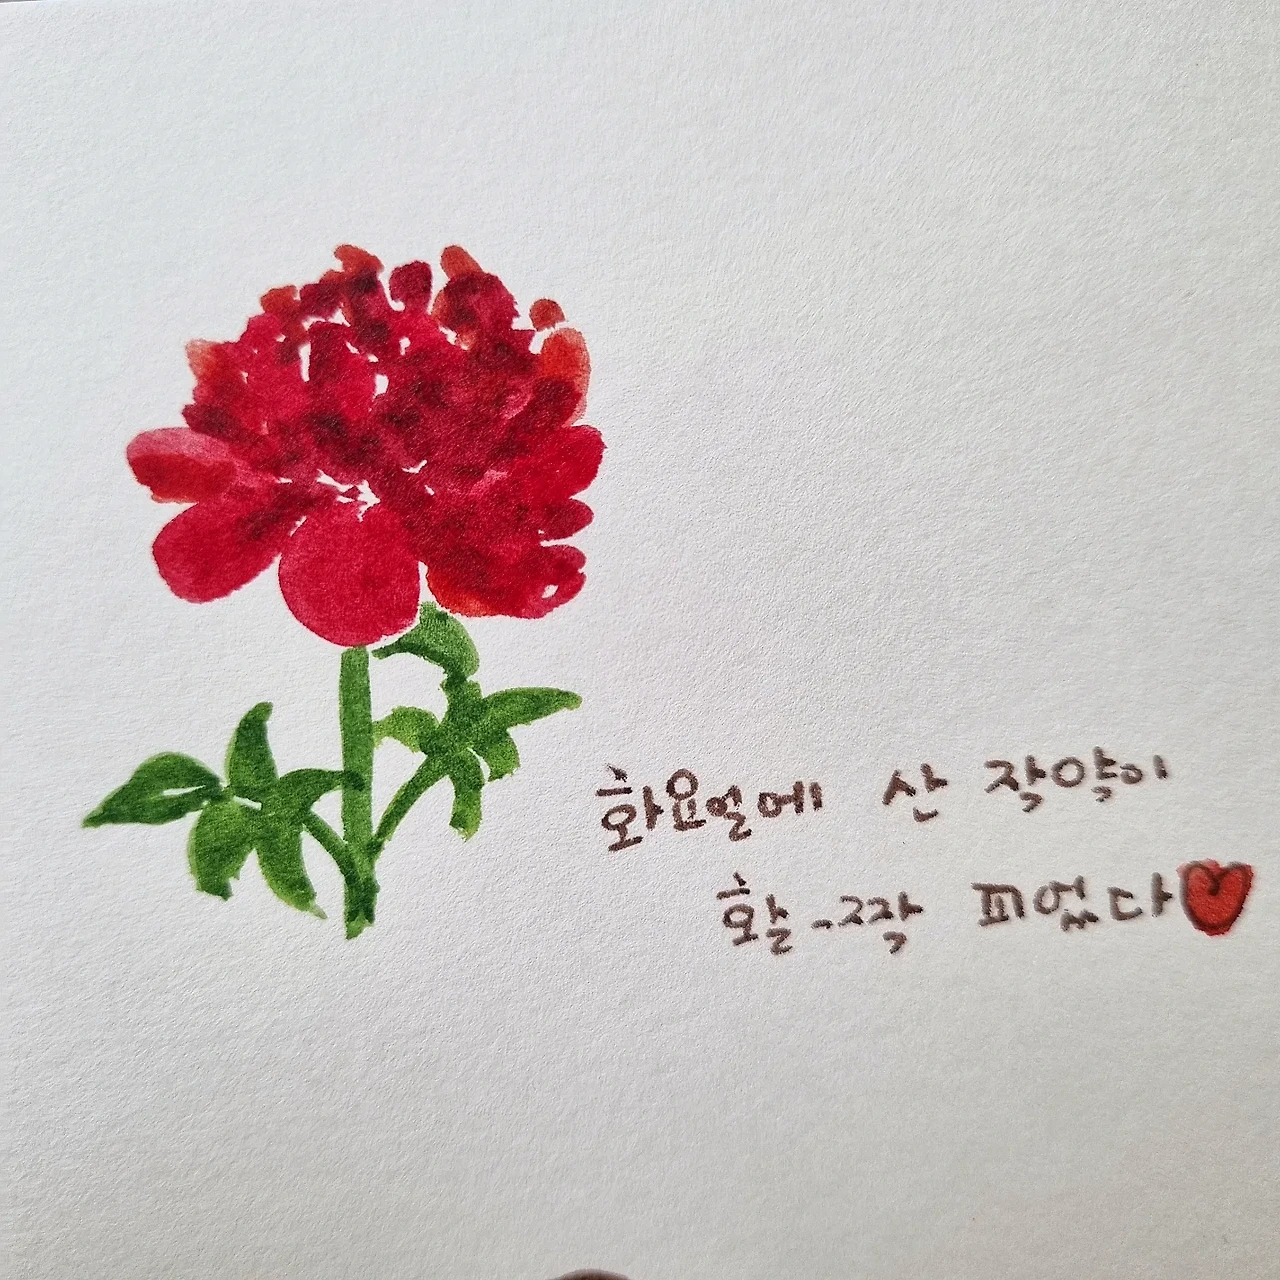 화요일에 산 작약이
활-짝 피었다♥